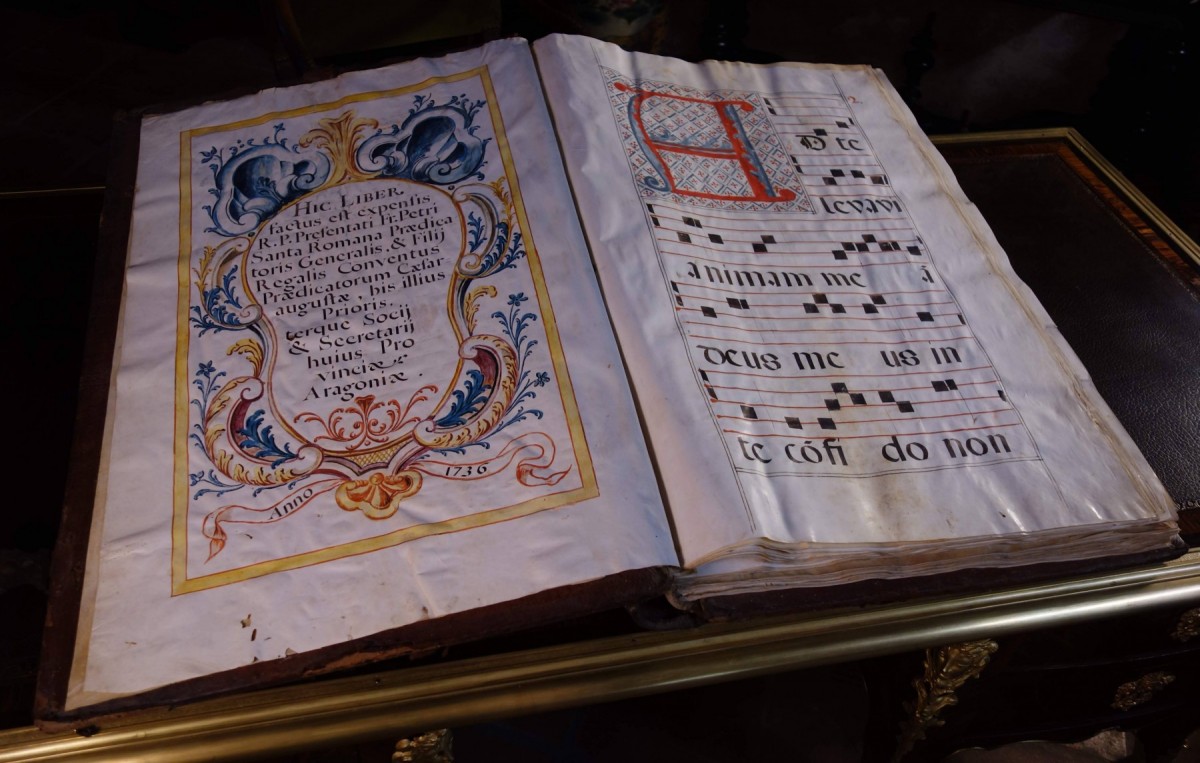 HIC LIBER,
factus est expensis
R. P. Presentati Fr. Petri
Santa Romana Prædica
toris Generalis & Filij
Regalis Conventus
Prædicatorum Cæsar
augustæ, bis illius
Prioris.
terque Socij
& Secretarij
huius Pro
vinciæ
Aragoniæ.
Anno 1736
A D te
levavi
animam me ā
deus me us in
te cōfi do nōn